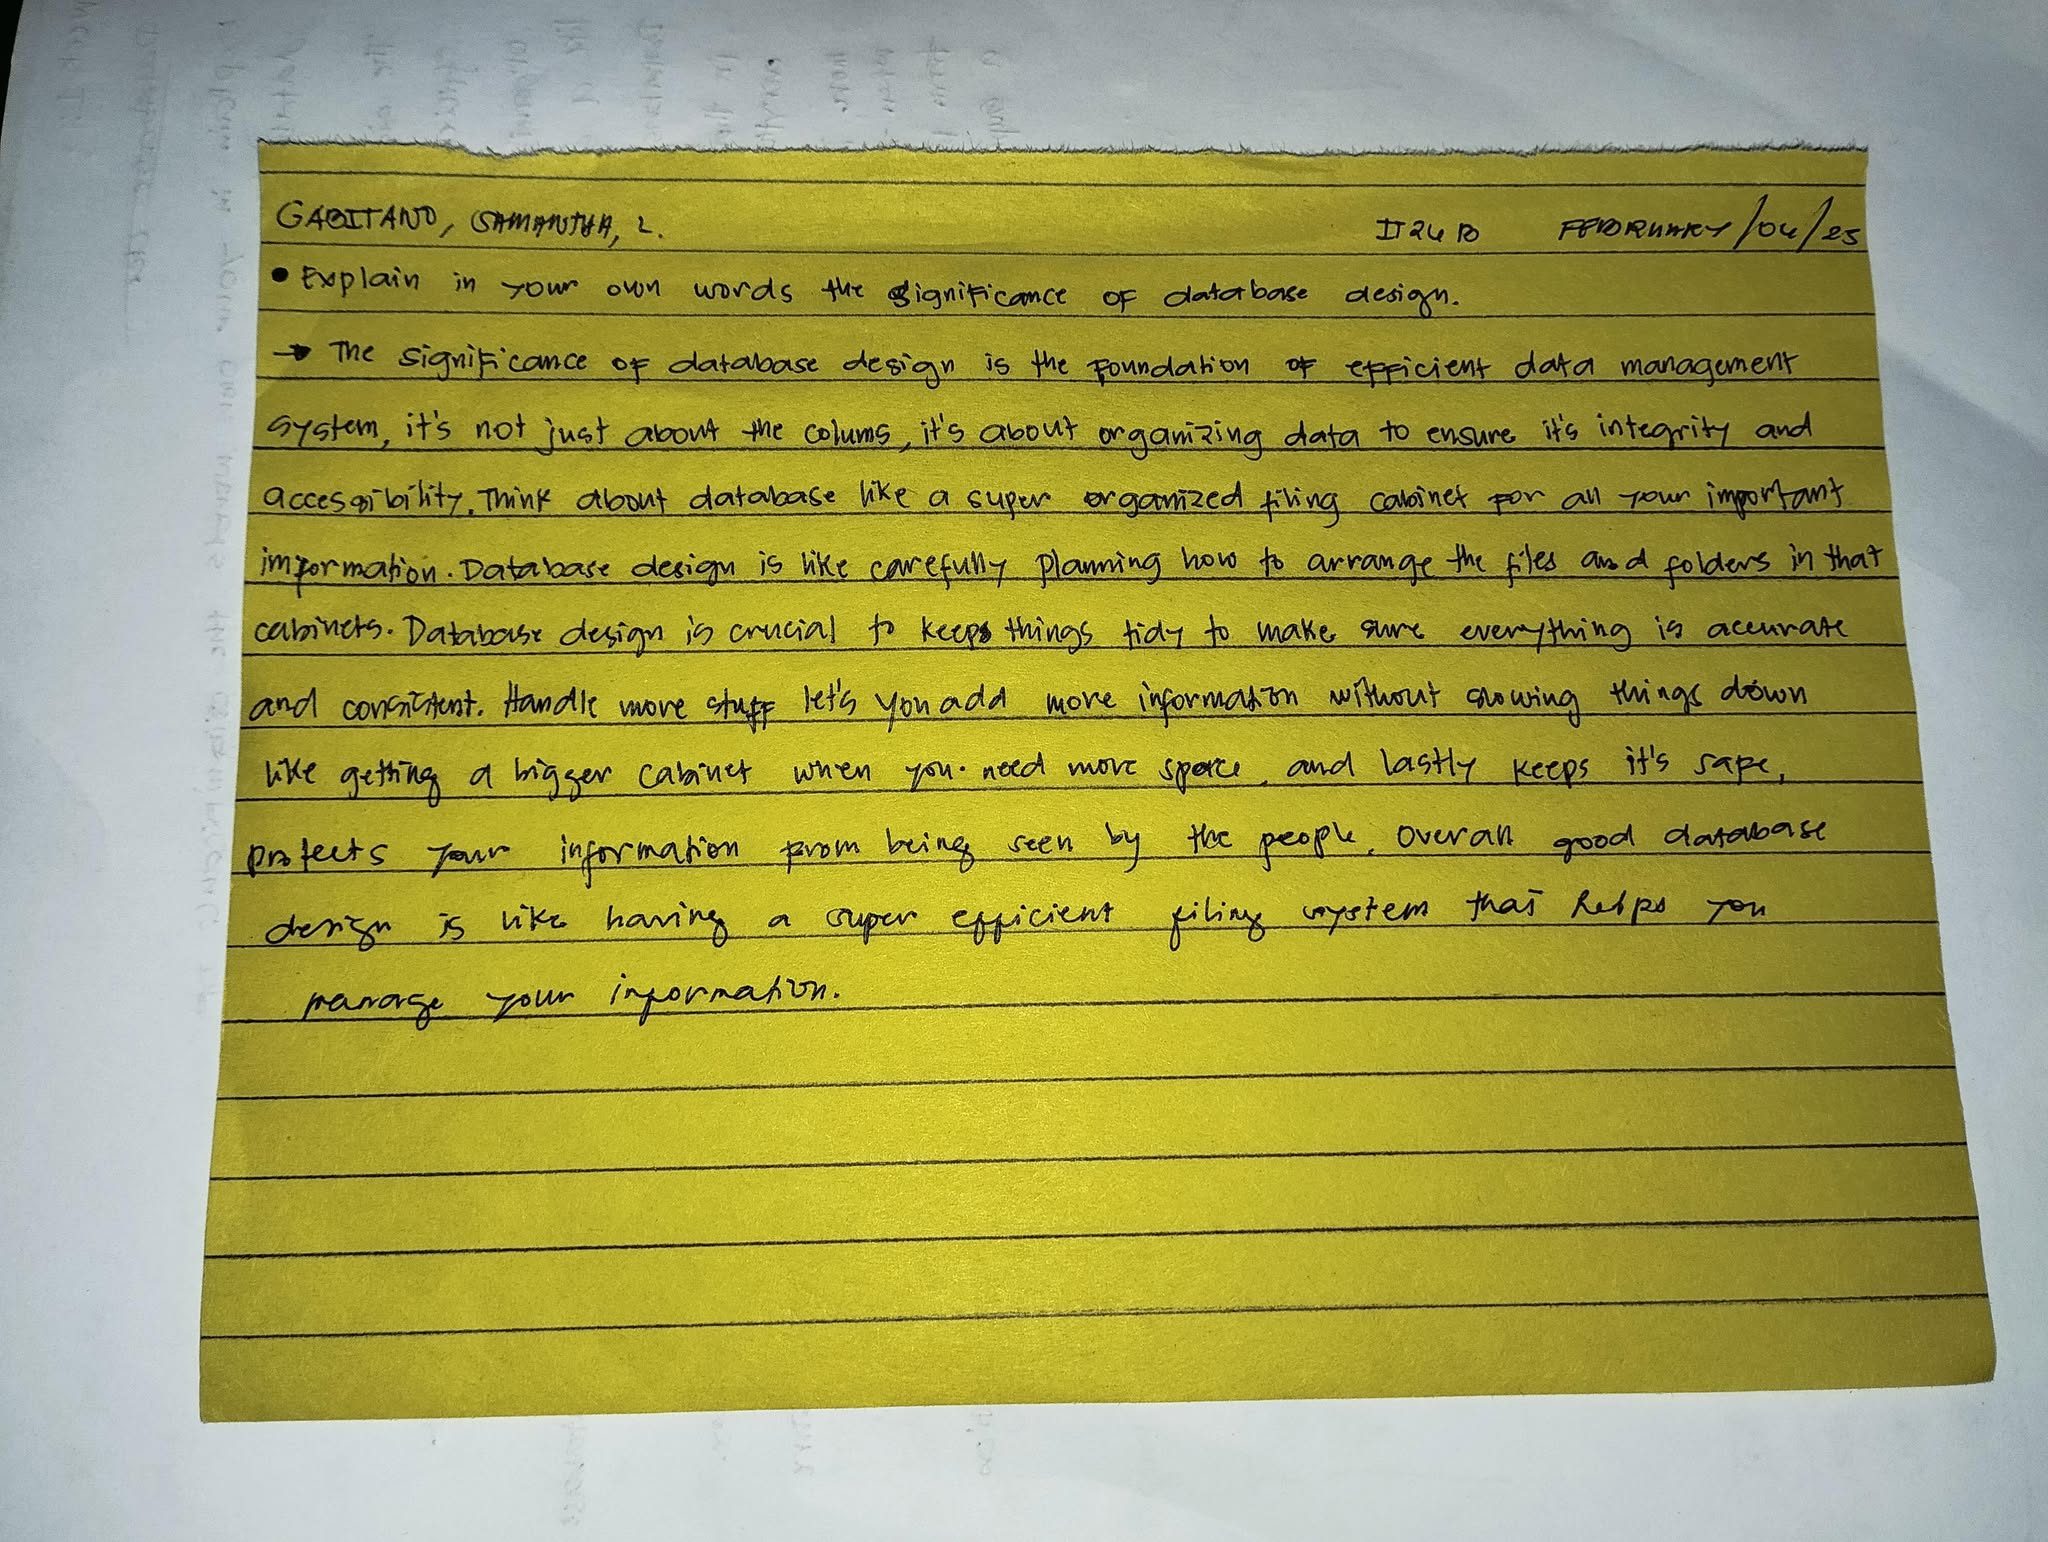 GABITANO, SAMANTHA, L. IT24B FEBRUARY/04/25
• Explain in your own words the significance of database design.
→ The significance of database design is the foundation of efficient data management
system, it's not just about the colums, it's about organizing data to ensure it's integrity and
accessibility. Think about database like a super organized filing cabinet for all your important
information. Database design is like carefully planning how to arrange the files and folders in that
cabinets. Database design is crucial to keeps things tidy to make sure everything is accurate
and consistent. Handle more stuff let's you add more information without slowing things down
like getting a bigger cabinet when you need more space, and lastly keeps it's safe,
protects your information from being seen by the people. Overall good database
design is like having a super efficient filing system that helps you
manage your information.